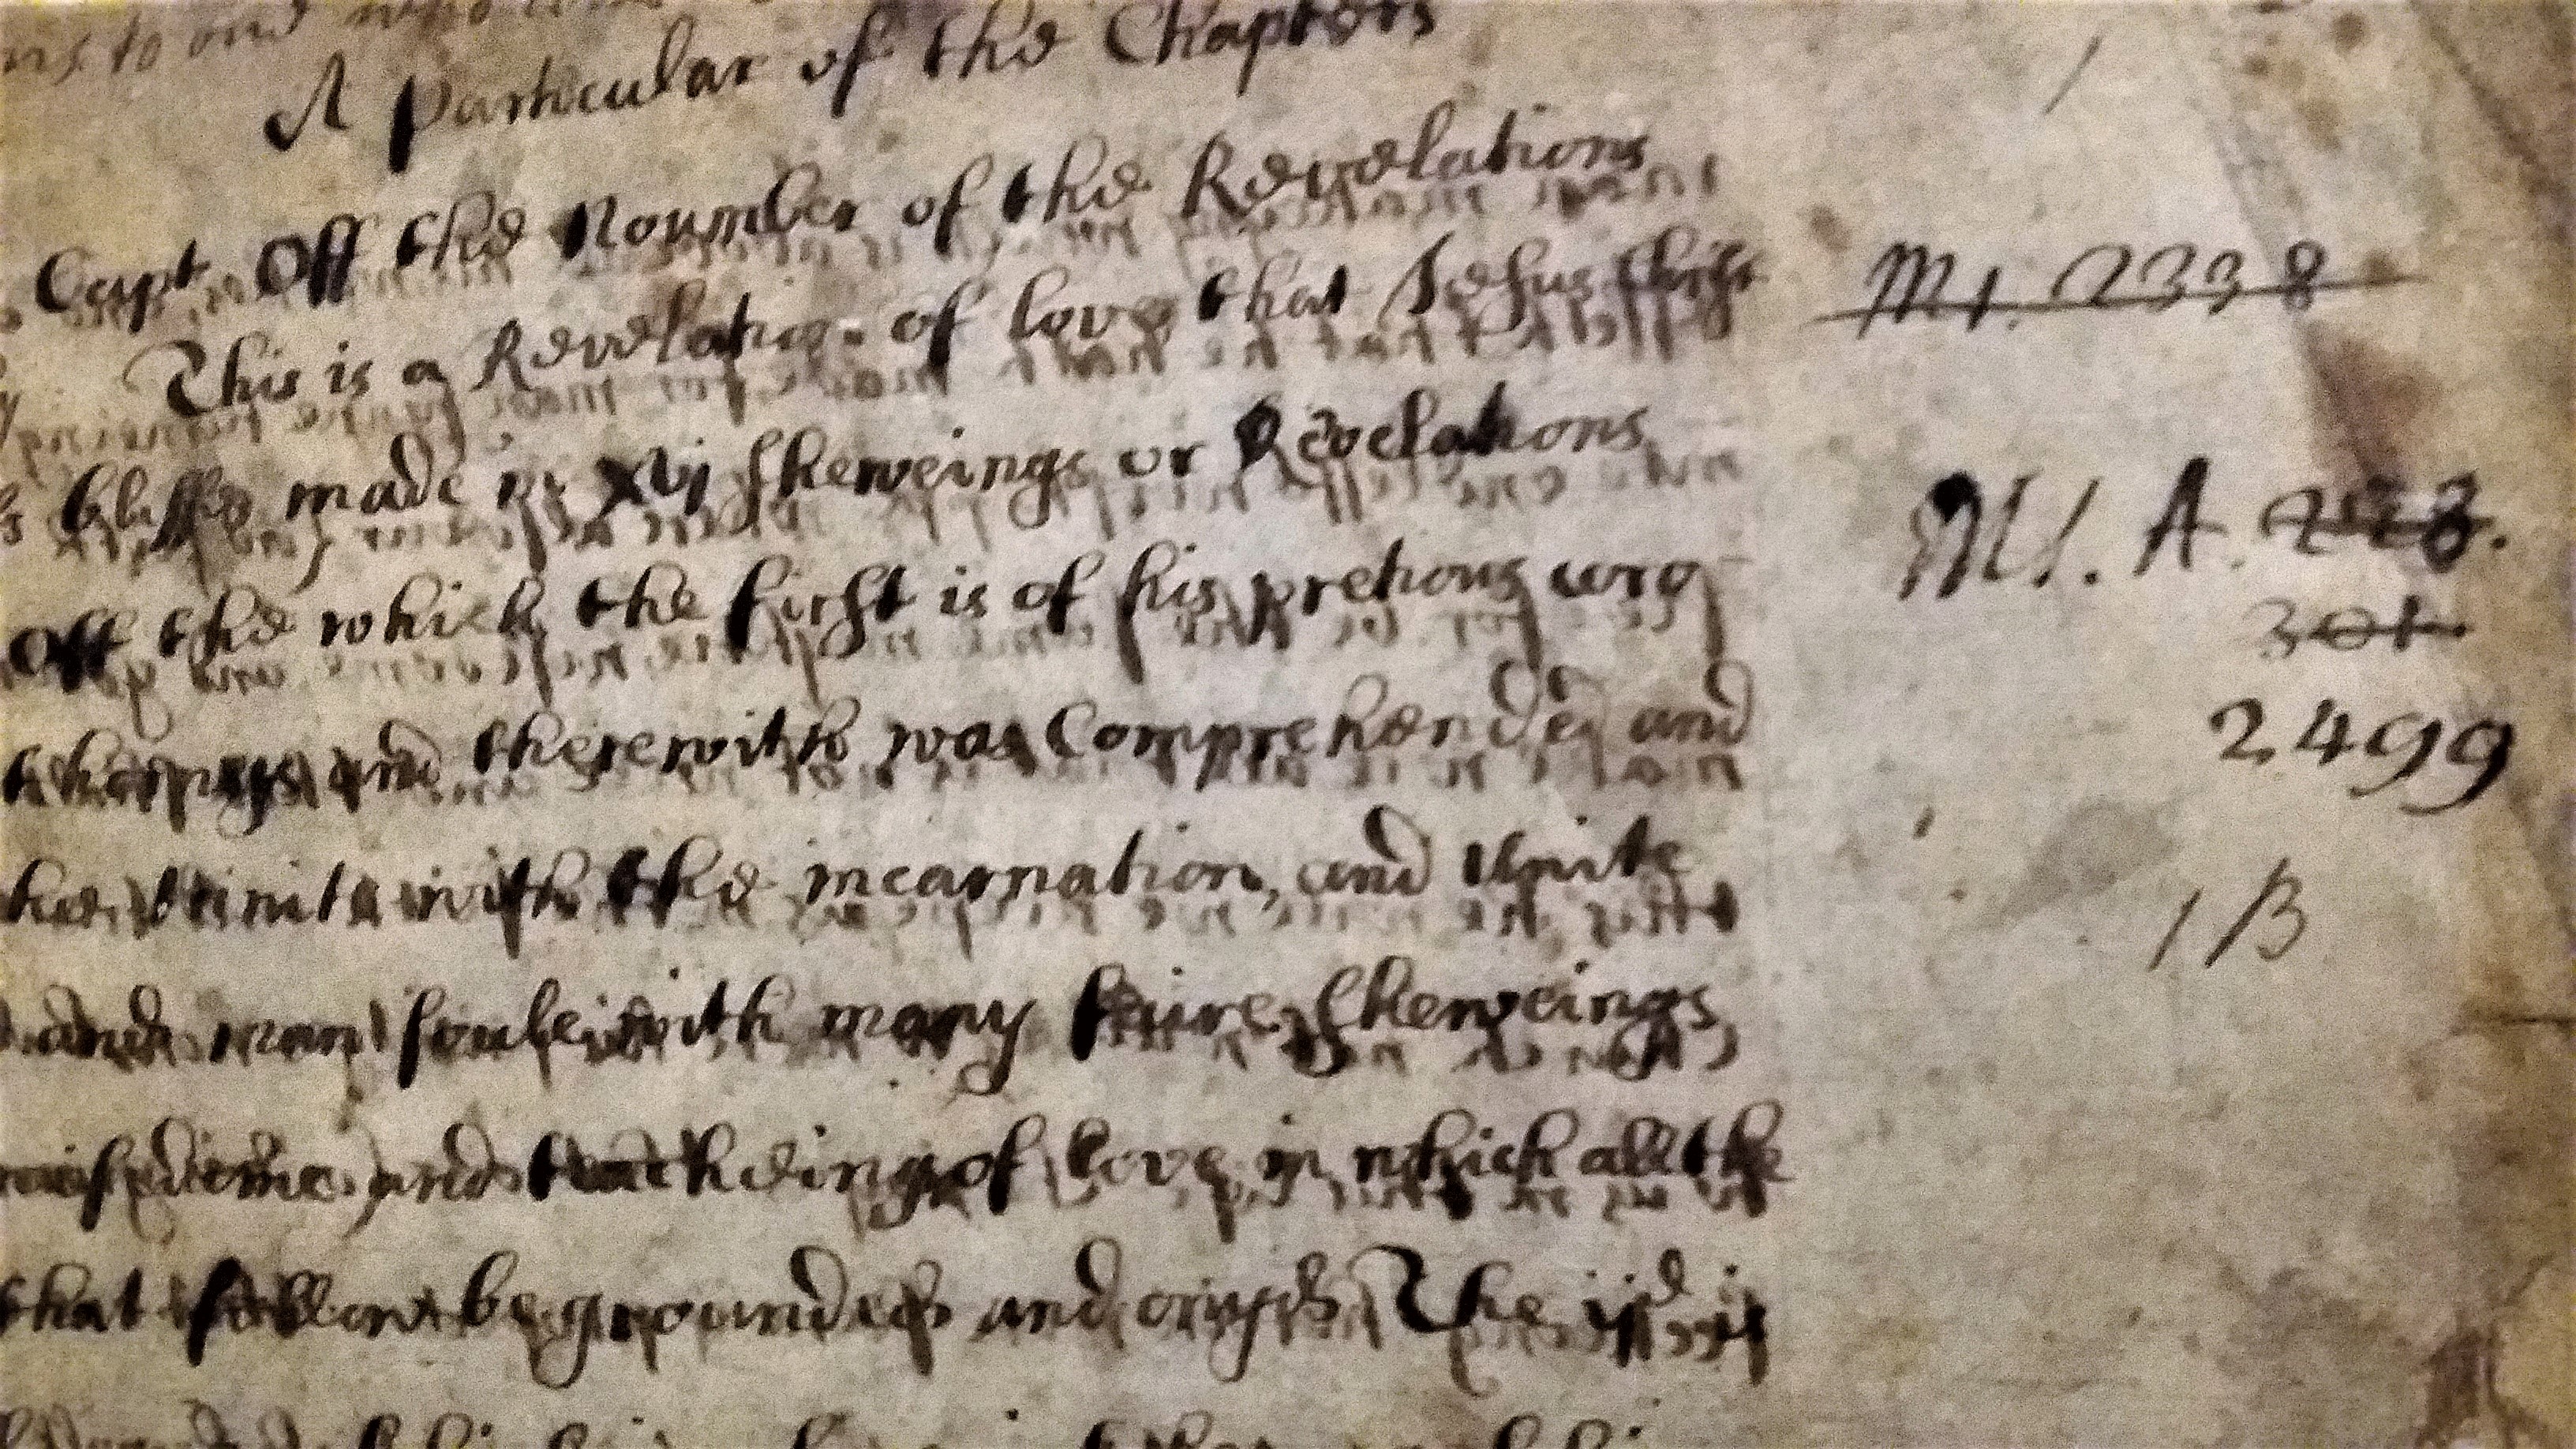 A Particular of the Chapters
Capt. Off the Noumber of the Revelations
This is a Revelation of love that Jesus Christ
blisse made in xvj shewings or Revelations
Off the which the first is of his pretious crog
and therewith was Comprehended and
trinite with the incarnation, and Unite
and man soule with many faire sheweings
and teacheing of love in which all the
that follow be grounded and The ijd is
MS. 2338
MS. A. 228.
301.
2499
1 B